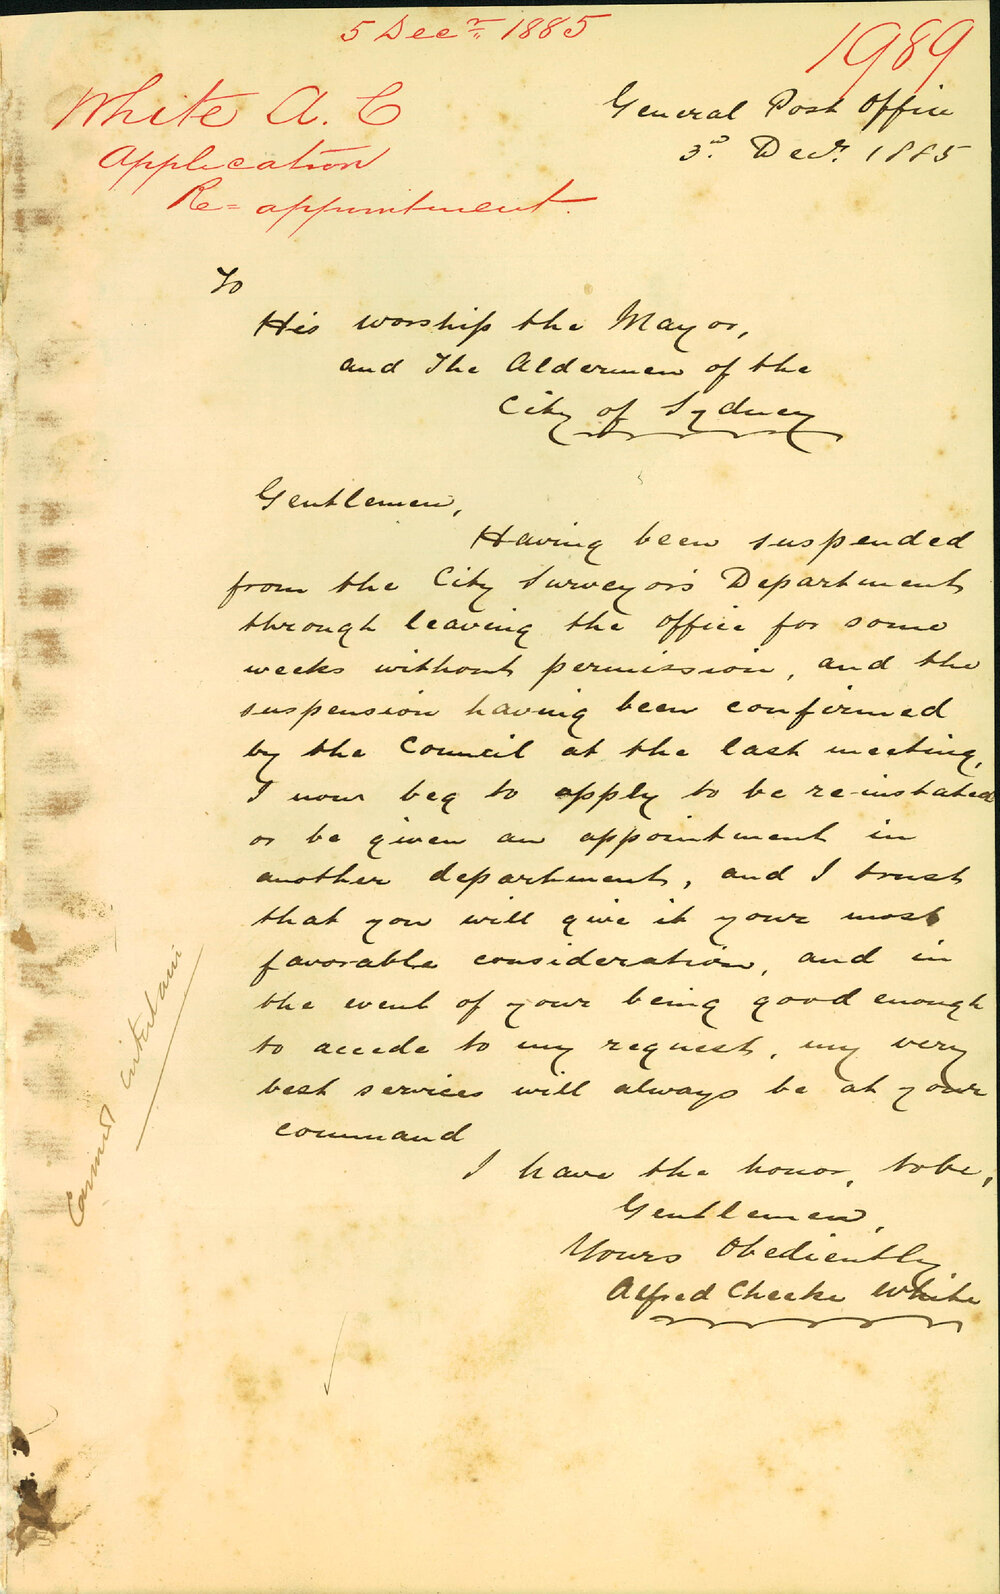 5 Decr 1885
1989
White A. C
Application
Re=appointment.
General Post Office
3d. Decr. 1885
To
His worship the Mayor,
and The Aldermen of the
City of Sydney
Gentlemen,
Having been suspended
from the City Surveyor's Department
through leaving the office for some
weeks without permission, and the
suspension having been confirmed
by the Council at the last meeting,
I now beg to apply to be re-instated
or be given an appointment in
another department, and I trust
that you will give it your most
favorable consideration, and in
the event of your being good enough
to accede to my request, my very
best services will always be at your
command
I have the honor, to be,
Gentlemen,
Yours Obediently
Alfred Cheeke White
Cannot entertain